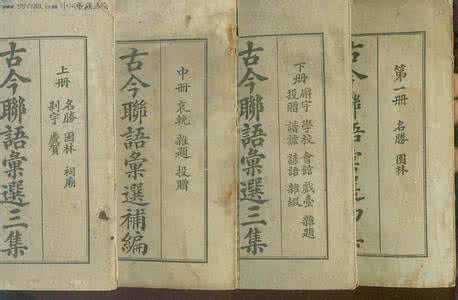 第一冊 名勝 園林
古今聯語彙選
下冊 廨宇 學校 會館 戲臺 雜題
投贈 諧謔 諺語 雜綴
古今聯語彙選三集
中冊 哀輓 雜題 投贈
古今聯語彙選補編
上冊 名勝 園林 祠廟
刹宇 慶賀
古今聯語彙選三集